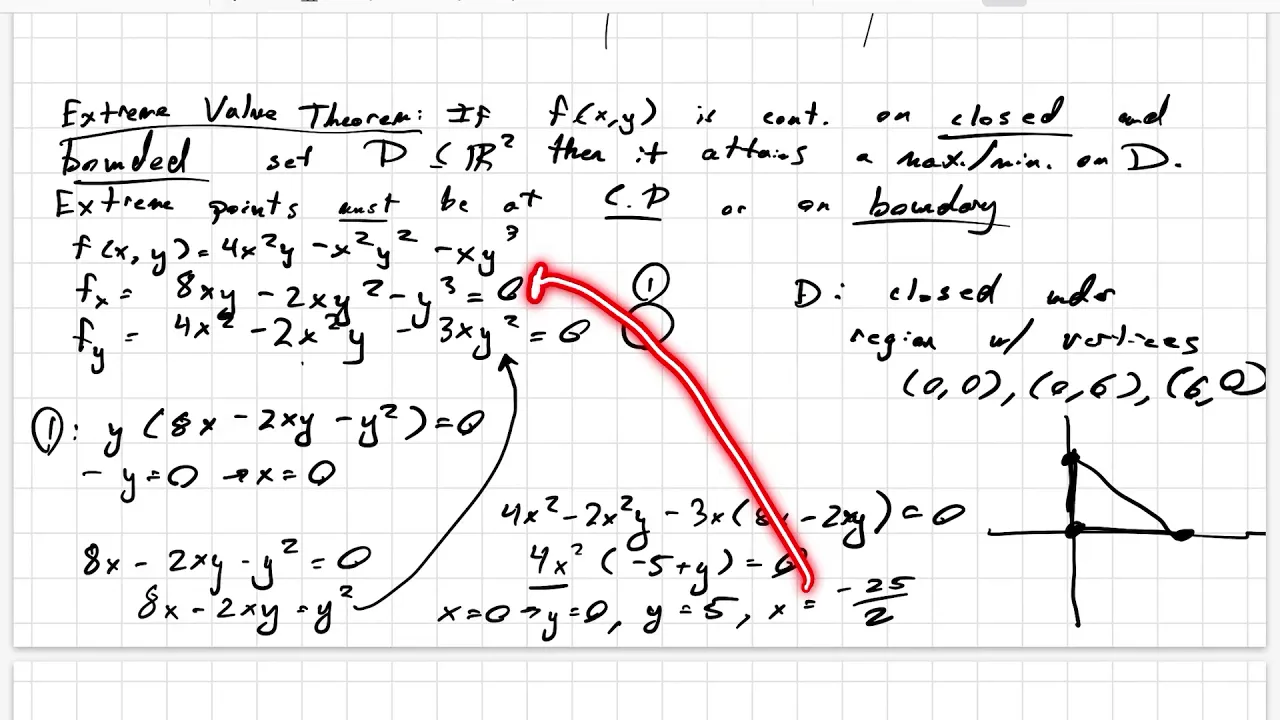 Extreme Value Theorem: If f(x,y) is cont. on closed and
bounded set D ⊆ ℝ² then it attains a max./min. on D.
Extreme points must be at C.P or on boundary
f(x,y) = 4x²y - x²y² - xy³
fx = 8xy - 2xy² - y³ = 0 ①
fy = 4x² - 2x²y - 3xy² = 0
D: closed
region w/ vertices
(0,0), (0,6), (6,0)
①: y (8x - 2xy - y²) = 0
- y = 0 → x = 0
8x - 2xy - y² = 0
8x - 2xy = y²
4x² - 2x²y - 3x(8x - 2xy) = 0
4x² (-5+y) = 0
x = 0 → y = 0, y = 5, x = -25/2